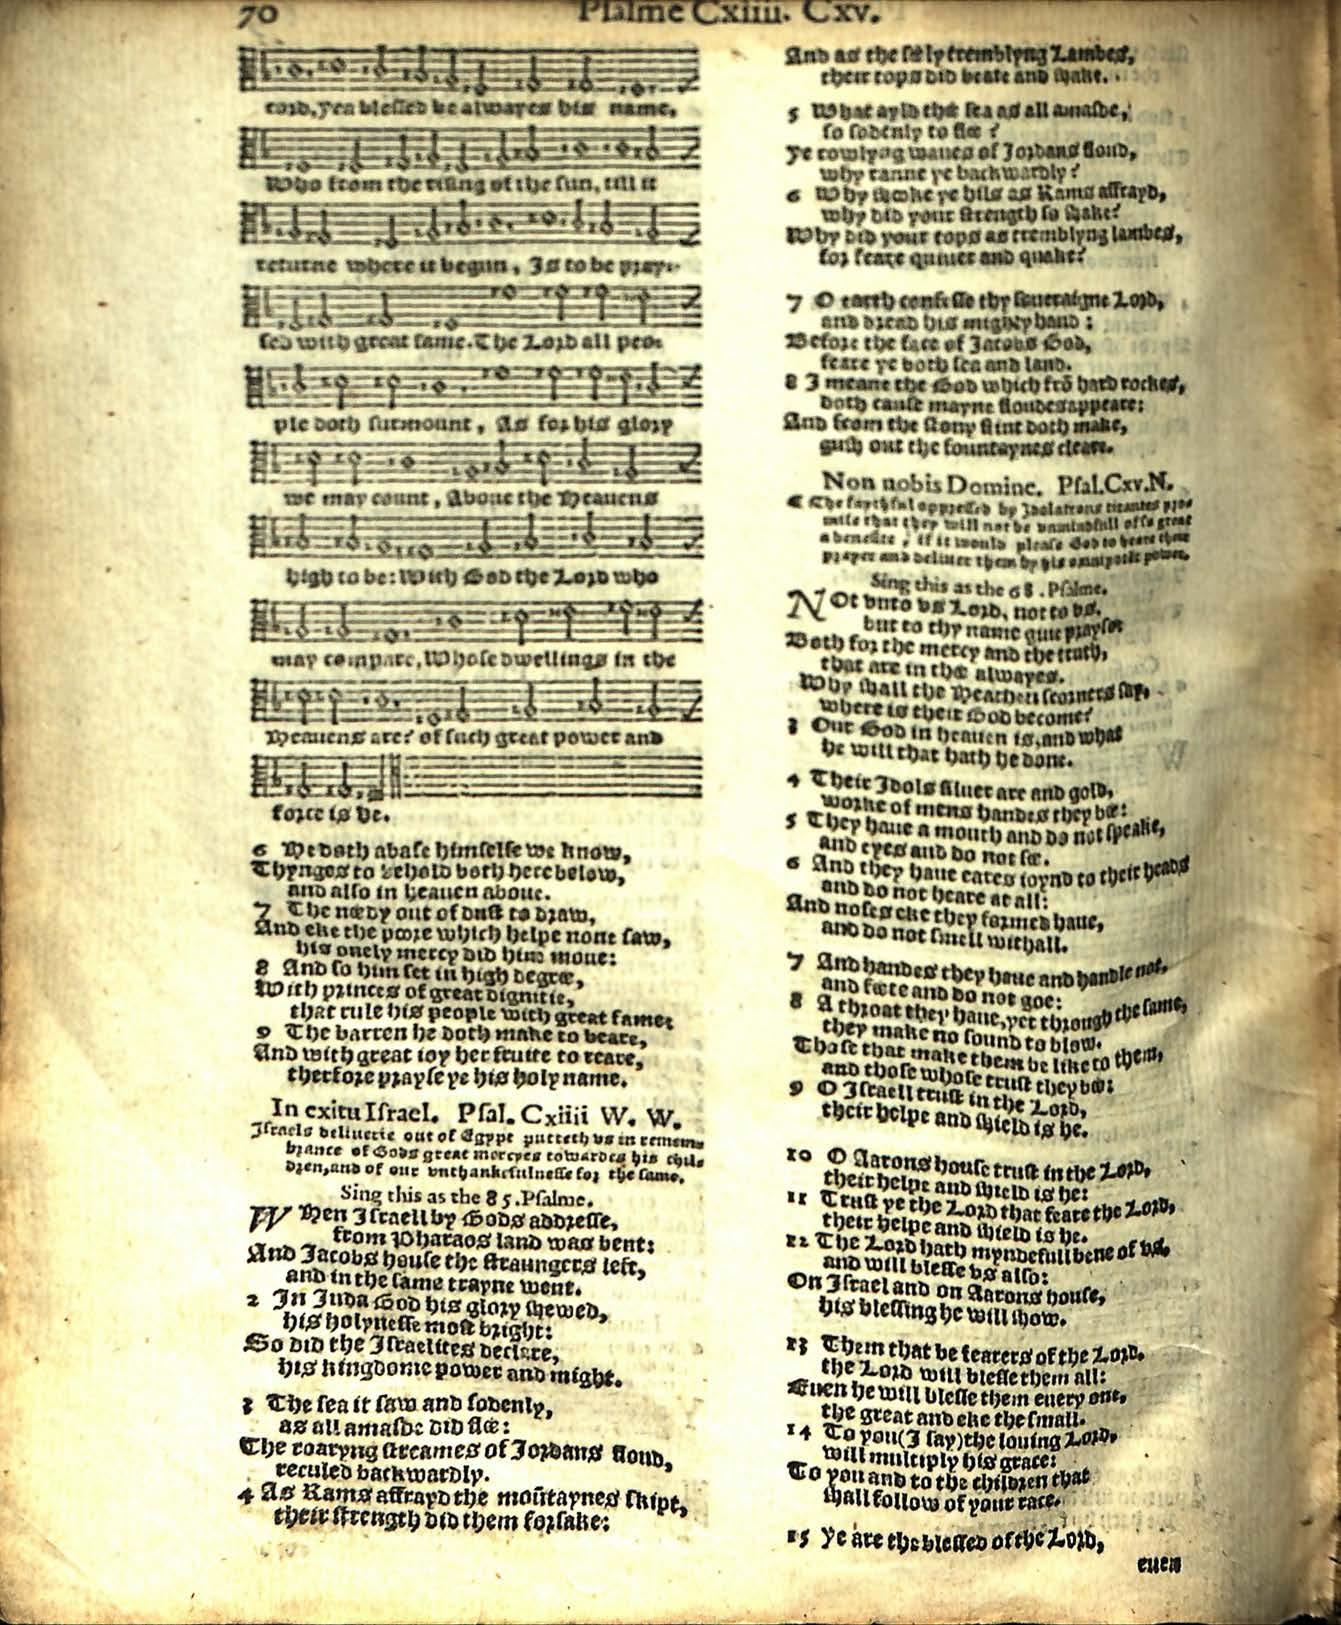 70
Psalme Cxiiii. Cxv.
Lord, yea blessed be alwayes his name.
Who from the rising of the sun, till it
returne where it begun, Is to be pray-
sed with great fame. The Lord all peo-
ple doth surmount, As for his glory
we may count, Aboue the Heauens
high to be: With God the Lord who
may compare, Whose dwellings in the
Heauens are? of such great power and
force is he.
6 He doth abase himselfe we know,
Thynges to behold both here below,
and also in heauen aboue.
7 The nedy out of dust to draw,
And eke the poore which helpe none saw,
his onely mercy did him moue:
8 And so him set in high degree,
With princes of great dignitie,
that rule his people with great fame:
9 The barren he doth make to beare,
And with great ioy her fruite to reare,
therfore prayse ye his holy name.
In exitu Israel. Psal. Cxiiii W. W.
Israels deliuerie out of Egypt putteth vs in remem-
brance of Gods great mercyes towardes his chil-
dren, and of our vnthankefulnesse for the same.
Sing this as the 85. Psalme.
WHen Israell by Gods addresse,
from Pharaos land was bent:
And Iacobs house the straungers left,
and in the same trayne went.
2 In Iuda God his glory shewed,
his holynesse most bright:
So did the Israelites declare,
his kingdome power and might.
3 The sea it saw and sodenly,
as all amasde did flee:
The roaryng streames of Iordans floud,
reculed backwardly.
4 As Rams affrayd the moũtaynes skipt,
their strength did them forsake:
And as the sely tremblyng Lambes,
their tops did beate and shake.
5 What ayld thee sea as all amasde,
so sodenly to flee?
Ye rowlyng waues of Iordans floud,
why ranne ye backwardly?
6 Why shooke ye hils as Rams affrayd,
why did your strength so shake?
Why did your tops as tremblyng lambes,
for feare quiuer and quake?
7 O earth confesse thy soueraigne Lord,
and dread his mighty hand:
Before the face of Iacobs God,
feare ye both sea and land.
8 I meane the God which frõ hard rockes,
doth cause mayne floudes appeare:
And from the stony flint doth make,
gush out the fountaynes cleare.
Non nobis Domine. Psal. Cxv. N.
¶ The faythful oppressed by Idolatrous tirantes pro-
mise that they will not be vnmindfull of so great
a benefite, if it would please God to heare their
prayer and deliuer them by his omnipotẽt power.
Sing this as the 68. Psalme.
NOt vnto vs Lord, not to vs,
but to thy name giue prayse
Both for the mercy and the truth,
that are in thee alwayes.
Why shall the Heathen scorners say,
where is their God become?
3 Our God in heauen is, and what
he will that hath he done.
4 Their Idols siluer are and gold,
worke of mens handes they be:
5 They haue a mouth and do not speake,
and eyes and do not see.
6 And they haue eares ioynd to their heads
and do not heare at all:
And noses eke they formed haue,
and do not smell withall.
7 And handes they haue and handle not,
and feete and do not goe:
8 A throat they haue, yet through the same,
they make no sound to blow.
Those that make them be like to them,
and those whose trust they be:
9 O Israell trust in the Lord,
their helpe and shield is he.
10 O Aarons house trust in the Lord,
their helpe and shield is he:
11 Trust ye the Lord that feare the Lord,
their helpe and shield is he.
12 The Lord hath myndefull bene of vs,
and will blesse vs also:
On Israel and on Aarons house,
his blessing he will show.
13 Them that be fearers of the Lord,
the Lord will blesse them all:
Euen he will blesse them euery one,
the great and eke the small.
14 To you (I say) the louing Lord,
will multiply his grace:
To you and to the children that
shall follow of your race.
15 Ye are the blessed of the Lord,
euen